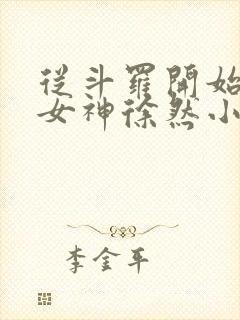 從斗羅開始
女神徐然小
李金平